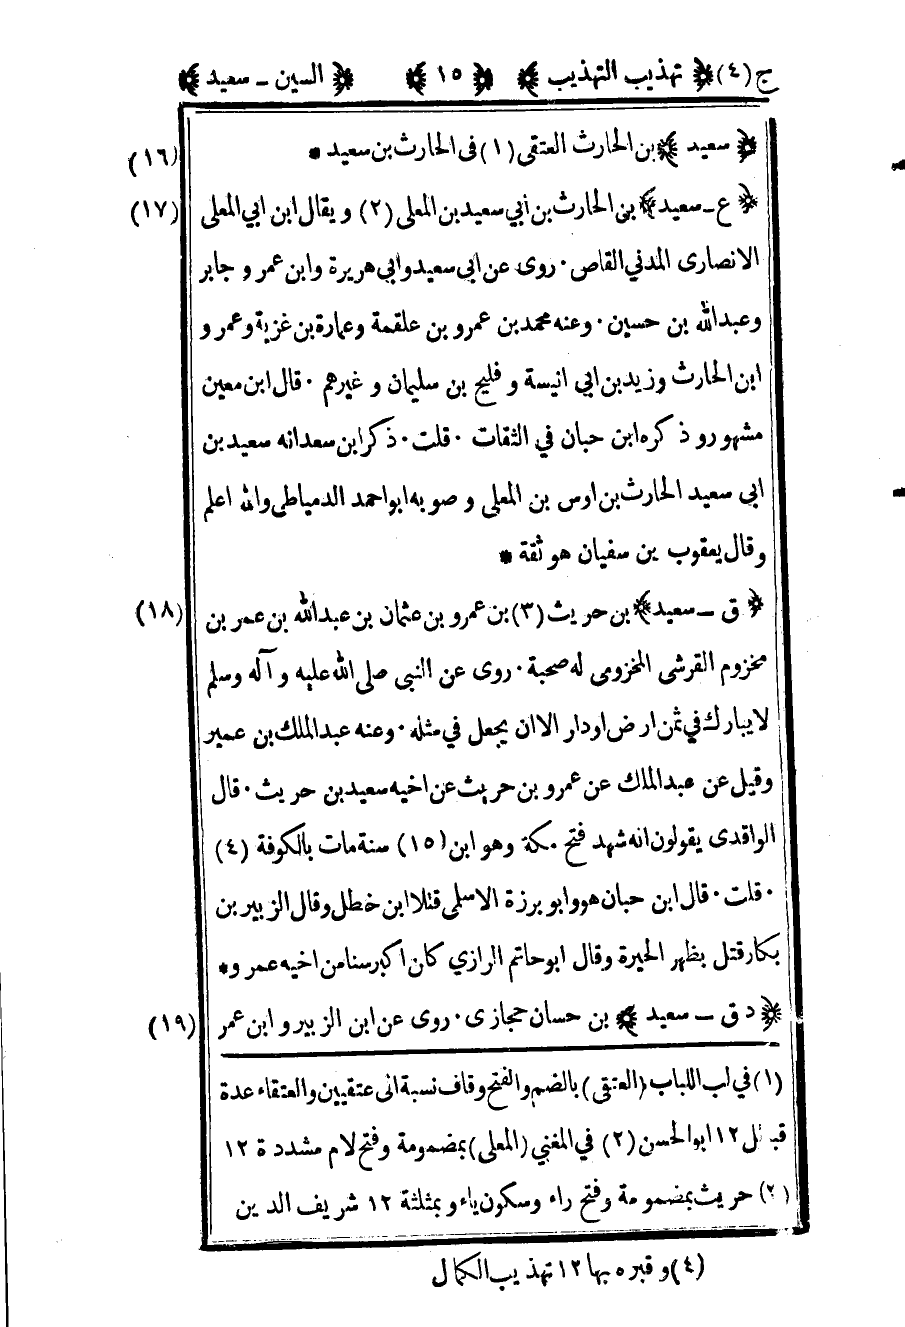 ج (٤) ﴿ تهذيب التهذيب ﴾ ﴿ ١٥ ﴾ ﴿ السين ــ سعيد ﴾
﴿ سعيد ﴾ بن الحارث العتقى (١) فى الحارث بن سعيد * (١٦)
﴿ ع ــ سعيد ﴾ بن الحارث بن أبي سعيد بن المعلى (٢) و يقال ابن ابي المعلى (١٧)
الانصارى المدني القاص . روى عن ابى سعيد وابي هريرة وابن عمر و جابر
وعبدالله بن حسين . وعنه محمد بن عمرو بن علقمة وعمارة بن غزية وعمر و
ابن الحارث وزيد بن ابي انيسة و فليح بن سليمان و غيرهم . قال ابن معين
مشهور و ذكره ابن حبان في الثقات . قلت . ذكر ابن سعد انه سعيد بن
ابي سعيد الحارث بن اوس بن المعلى و صوبه ابو احمد الدمياطى والله اعلم
وقال يعقوب بن سفيان هو ثقة *
﴿ ق ــ سعيد ﴾ بن حريث (٣) بن عمرو بن عثمان بن عبدالله بن عمر بن (١٨)
مخزوم القرشى المخزومى له صحبة . روى عن النبى صلى الله عليه و آله وسلم
لا يبارك في ثمن ارض او دار الا ان يجعل في مثله . وعنه عبدالملك بن عمير
وقيل عن عبدالملك عن عمرو بن حريث عن اخيه سعيد بن حريث . قال
الواقدى يقولون انه شهد فتح مكة وهو ابن (١٥) سنة مات بالكوفة (٤)
. قلت . قال ابن حبان هو وابو برزة الاسلمى قتلا ابن خطل وقال الزبير بن
بكار قتل بظهر الحيرة وقال ابو حاتم الرازي كان اكبر سنا من اخيه عمر و *
﴿ د ق ــ سعيد ﴾ بن حسان حجازى . روى عن ابن الزبير و ابن عمر (١٩)
(١) في لب اللباب (العتقى) بالضم والفتح وقاف نسبة الى عتقيين والعتقاء عدة
قبائل ١٢ ابوالحسن (٢) في المغني (المعلى) بمضمومة وفتح لام مشددة ١٢
(٢) حريث بمضمومة وفتح راء وسكون ياء و بمثلثة ١٢ شريف الدين
(٤) و قبره بها ١٢ تهذيب الكمال